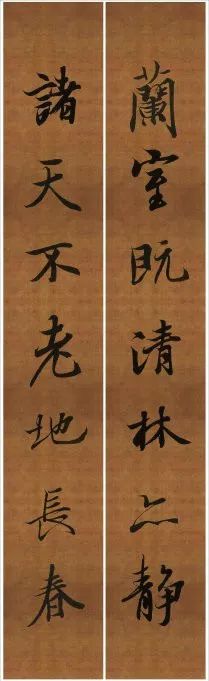 蘭室既清林亦静
諸天不老地長春